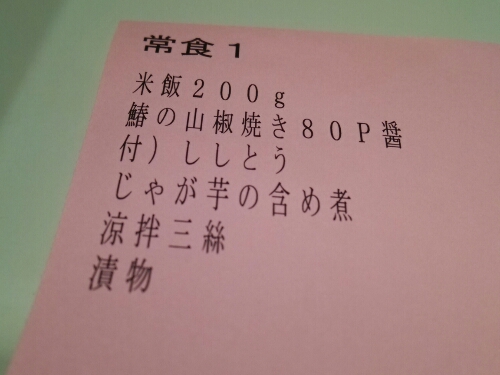 常食1
米飯200g
鰆の山椒焼き80P醤
付)ししとう
じゃが芋の含め煮
涼拌三絲
漬物